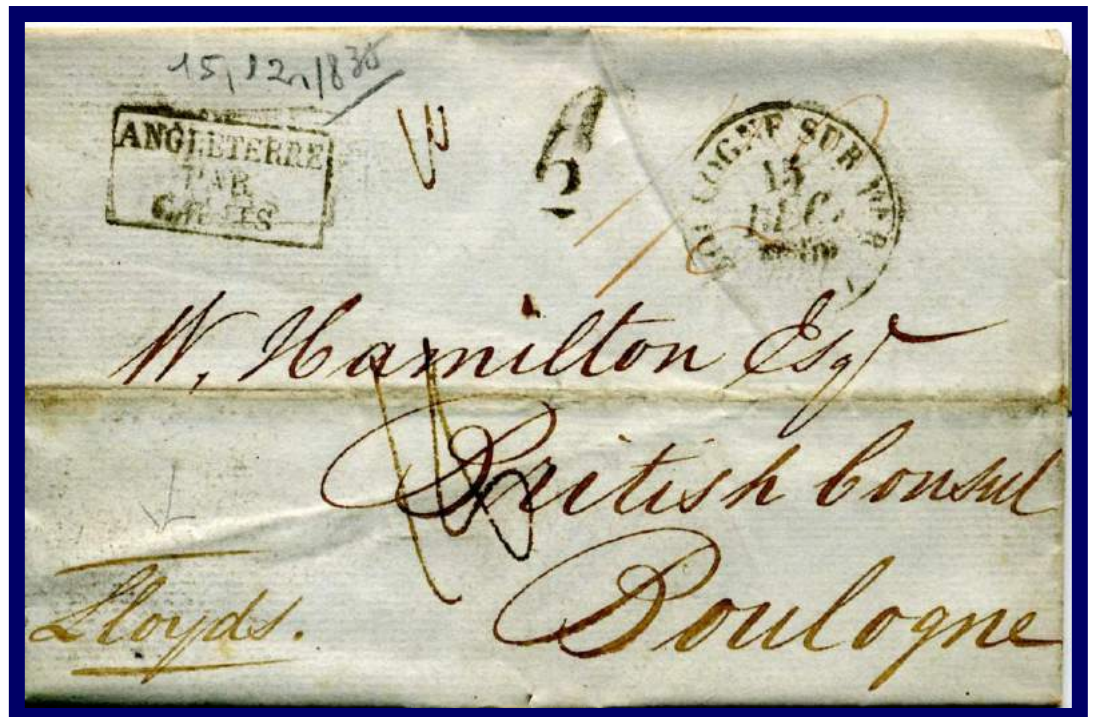 15,12,1835
ANGLETERRE
PAR
CALAIS
BOULOGNE SUR MER
15
DEC.
W. Hamilton Esqr
British Consul
Boulogne
Lloyds.